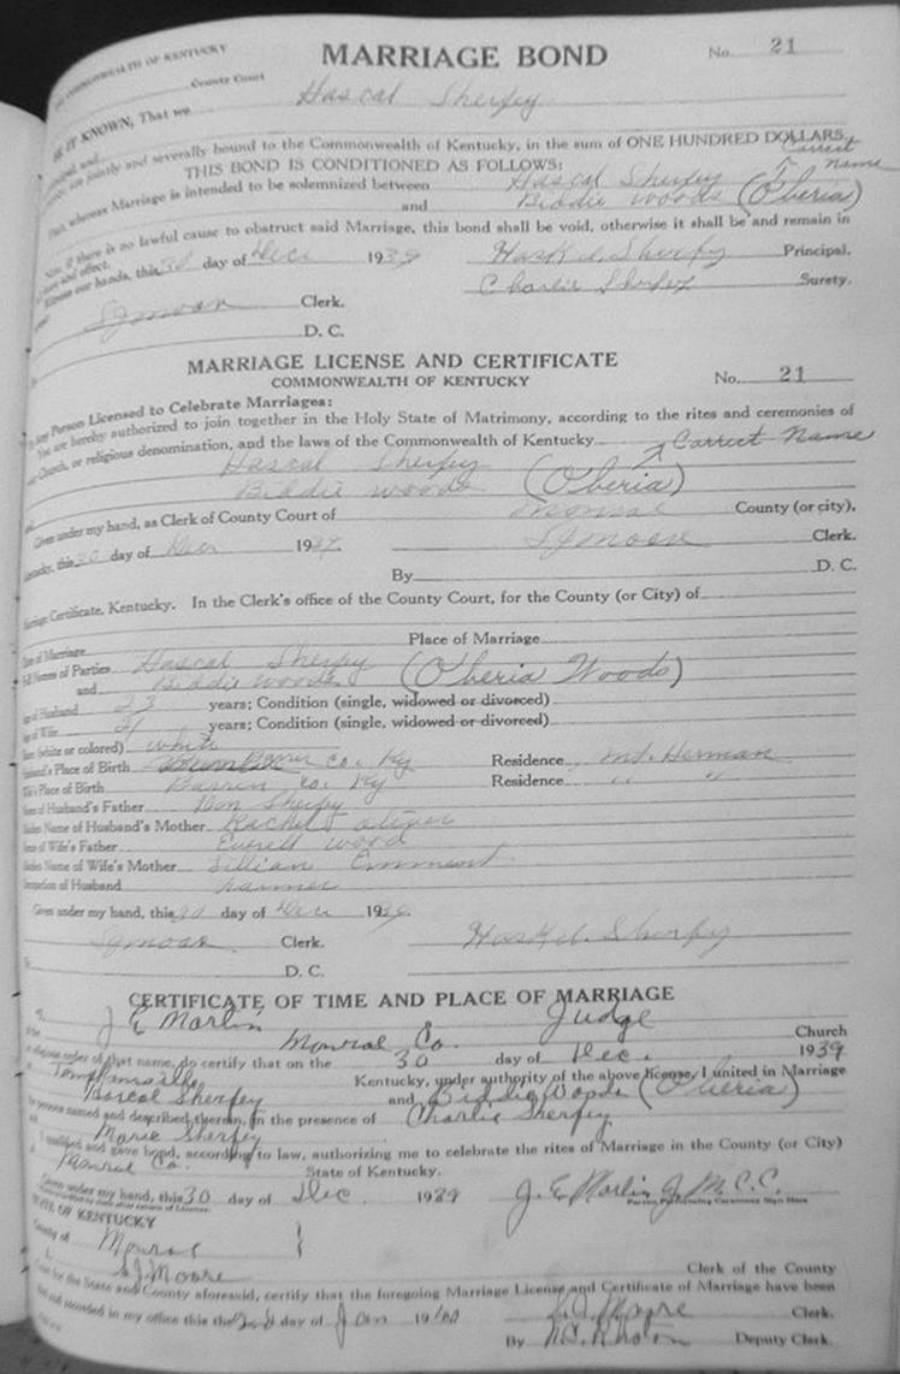 COMMONWEALTH OF KENTUCKY
MARRIAGE BOND
No. 21
County Court
BE IT KNOWN, That we Hascal Sherfey
are jointly and severally bound to the Commonwealth of Kentucky, in the sum of ONE HUNDRED DOLLARS.
Correct name
THIS BOND IS CONDITIONED AS FOLLOWS:
That, whereas Marriage is intended to be solemnized between Hascal Sherfey
and Biddie Woods (O'beria)
Now, if there is no lawful cause to obstruct said Marriage, this bond shall be void, otherwise it shall be and remain in
force and effect.
Witness our hands, this 30 day of Dec 1939 Haskal Sherfey Principal.
Charlie Sherfey Surety.
SJ Moore Clerk.
D. C.
MARRIAGE LICENSE AND CERTIFICATE
COMMONWEALTH OF KENTUCKY
No. 21
To Any Person Licensed to Celebrate Marriages:
You are hereby authorized to join together in the Holy State of Matrimony, according to the rites and ceremonies of
your Church, or religious denomination, and the laws of the Commonwealth of Kentucky Correct Name
Hascal Sherfey
Biddie Woods (O'beria)
Given under my hand, as Clerk of County Court of Monroe County (or city),
Kentucky, this 30 day of Dec 1939. SJ Moore Clerk.
By D. C.
Marriage Certificate, Kentucky. In the Clerk's office of the County Court, for the County (or City) of
Date of Marriage Place of Marriage
Full Names of Parties Hascal Sherfey (O'beria Woods)
and Biddie Woods
Age of Husband 23 years; Condition (single, widowed or divorced)
Age of Wife 21 years; Condition (single, widowed or divorced)
Race (white or colored) white
Husband's Place of Birth Co. Ky Residence Mt. Herman
Wife's Place of Birth Barren Co. Ky Residence " "
Name of Husband's Father Sherfey
Maiden Name of Husband's Mother Rachel Oliver
Name of Wife's Father Everett Wood
Maiden Name of Wife's Mother Lillian Emmert
Occupation of Husband Farmer
Given under my hand, this 30 day of Dec 1939.
SJ Moore Clerk. Haskal Sherfey
D. C.
CERTIFICATE OF TIME AND PLACE OF MARRIAGE
I, J E Marlin Judge
Monroe Co. Church
or religious order of that name, do certify that on the 30 day of Dec. 1939
Tompkinsville Kentucky, under authority of the above license, I united in Marriage
Hascal Sherfey and Biddie Woods (O'beria)
the persons named and described therein, in the presence of Charlie Sherfey
Marie Sherfey
I qualified and gave bond, according to law, authorizing me to celebrate the rites of Marriage in the County (or City)
Monroe Co. State of Kentucky.
Given under my hand, this 30 day of Dec 1939 J. E. Marlin J. M. C. C.
Person Performing Ceremony Sign Here
STATE OF KENTUCKY
County of Monroe
I, S.J. Moore Clerk of the County
Court for the State and County aforesaid, certify that the foregoing Marriage License and Certificate of Marriage have been
recorded in my office this the 2nd day of Jan 1940
S.J. Moore Clerk.
By Deputy Clerk.